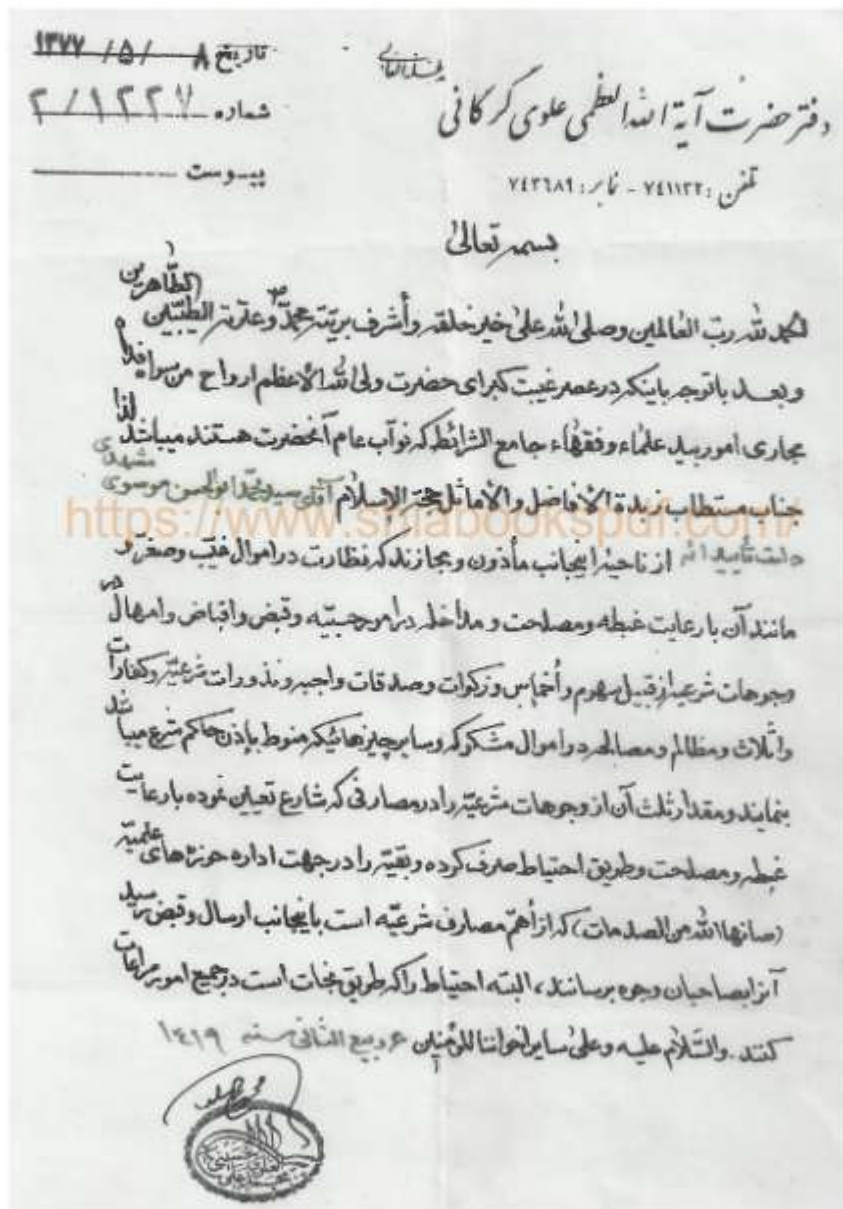 تاریخ ۸ / ۵ / ۱۳۷۷
شماره ۲/۱۲۲۷
پیوست
دفتر حضرت آیة الله العظمی علوی گرگانی
تلفن: ۷۴۱۱۳۲ - نمابر: ۷۴۳۶۸۹
بسمه تعالی
الحمد لله رب العالمین وصلی الله علی خیر خلقه وأشرف بریته محمد ص وعترته الطیّبین الطّاهرین
وبعد باتوجه باینکه در عصر غیبت کبرای حضرت ولی الله الأعظم ارواح من سواه فداه
مجاری امور بید علماء وفقهاء جامع الشرائط که نواب عام آنحضرت هستند میباشد لذا
جناب مستطاب زبدة الأفاضل والأماثل حجة الإسلام آقای سید محمد ابوالحسن موسوی مشهدی
https://www.shiabookspdf.com/
دامت تأییداته از ناحیه اینجانب مأذون ومجازند که نظارت در اموال غیّب وصغّر و
مانند آن با رعایت غبطه ومصلحت ومداخله در امور حسبیّه وقبض واقباض وامهال در
وجوهات شرعیه از قبیل سهم وأخماس وزکوات وصدقات واجبه ونذورات شرعیّه وکفارات
واثلاث ومظالم ومصالحه در اموال مشکوکه وسایر چیزهائیکه منوط بإذن حاکم شرع میباشد
بنمایند ومقدار ثلث آن از وجوهات شرعیّه را در مصارفی که شارع تعیین نموده با رعایت
غبطه ومصلحت وطریق احتیاط صرف کرده وبقیّه را در جهت اداره حوزه های علمیّه
(صانها الله من الصدمات) که از أهمّ مصارف شرعیّه است باینجانب ارسال وقبض رسید
آنرا بصاحبان وجوه برسانند، البته احتیاط را که طریق نجات است در جمیع امور مراعات
کنند. والسّلام علیه وعلی سایر اخواننا المؤمنین ۶ ربیع الثانی سنه ۱۴۱۹